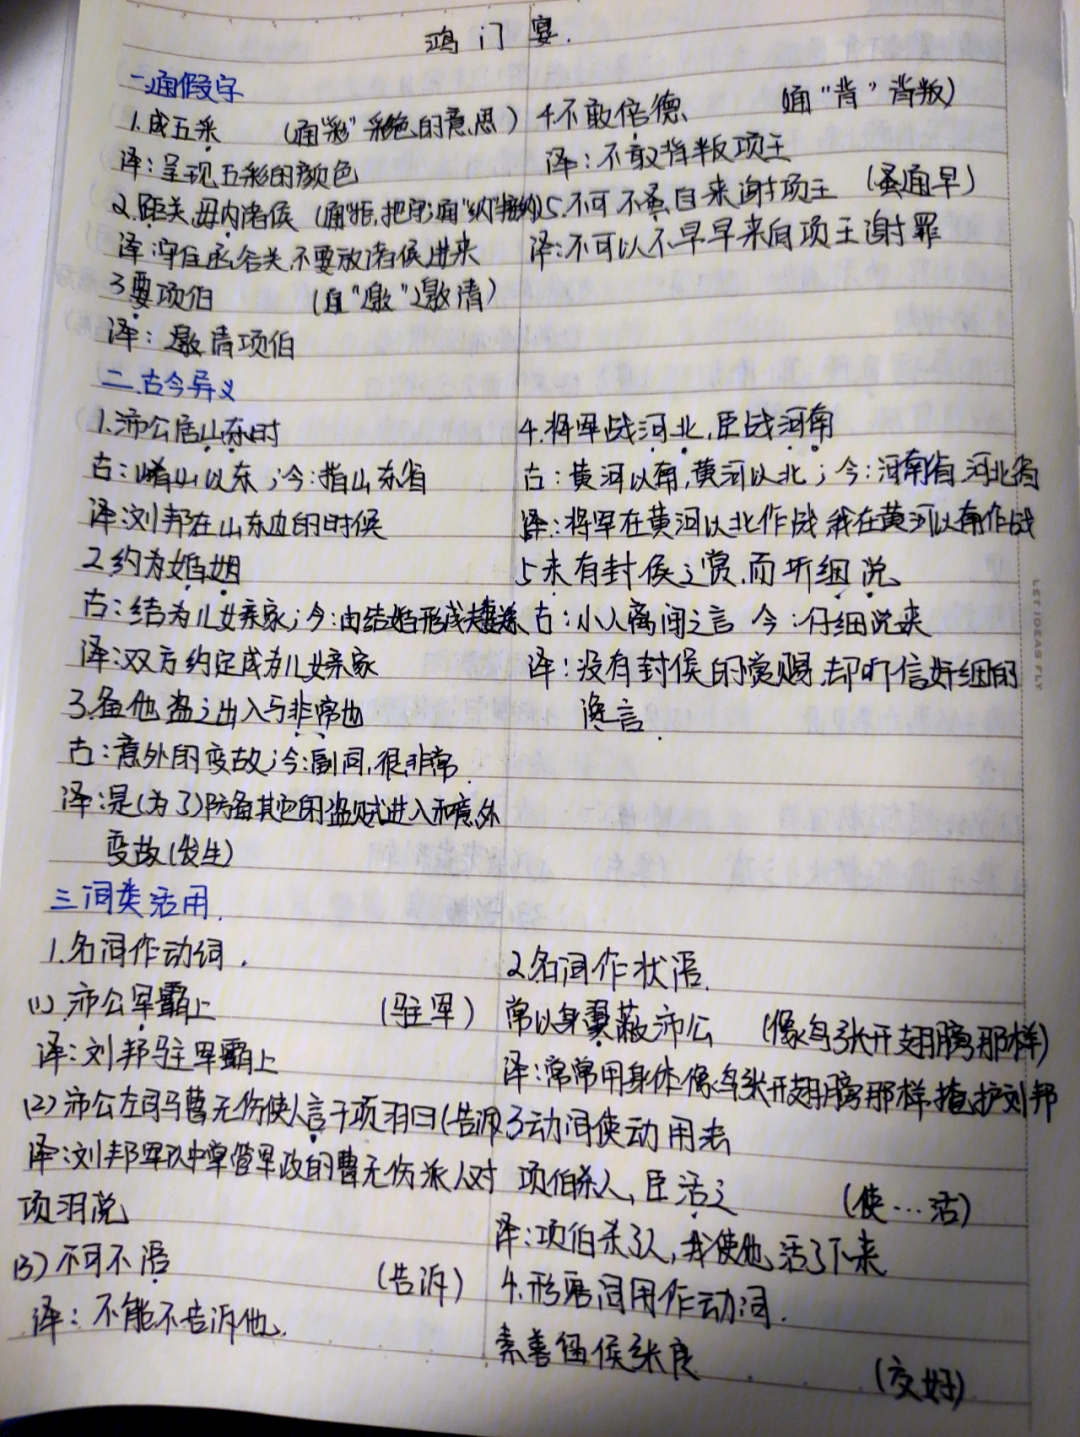 鸿门宴.
一.通假字
1.成五采 (通"彩" 彩色的意思)
译:呈现五彩的颜色
2.距关,毋内诸侯 (通"拒",把守;通"纳"接纳)
译:守住函谷关,不要放诸侯进来
3要项伯 (通"邀"邀请)
译:邀请项伯
4不敢倍德 (通"背"背叛)
译:不敢背叛项王
5.不可不蚤自来谢项王 (蚤通早)
译:不可以不早早来自项王谢罪
二.古今异义
1.沛公居山东时
古:崤山以东;今:指山东省
译:刘邦在山东边的时候
2.约为婚姻
古:结为儿女亲家;今:由结婚形成夫妻关系
译:双方约定成为儿女亲家
3.备他盗之出入与非常也
古:意外的变故;今:副词,很非常
译:是(为了)防备其它的盗贼进入和意外
变故(发生)
4.将军战河北,臣战河南
古:黄河以南,黄河以北;今:河南省河北省
译:将军在黄河以北作战 我在黄河以南作战
5未有封侯之赏,而听细说
古:小人离间之言 今:仔细说来
译:没有封侯的赏赐,却听信奸细的
谗言.
三词类活用.
1.名词作动词.
(1).沛公军霸上 (驻军)
译:刘邦驻军霸上
(2)沛公左司马曹无伤使人言于项羽曰(告诉)
译:刘邦军队中掌管军政的曹无伤派人对
项羽说
(3)不可不语 (告诉)
译:不能不告诉他.
2名词作状语.
常以身翼蔽沛公 (像鸟张开翅膀那样)
译:常常用身体像鸟张开翅膀那样,掩护刘邦
3动词使动用法
项伯杀人,臣活之 (使…活)
译:项伯杀了人,我使他活了下来
4.形容词用作动词.
素善留侯张良 (交好)
LET IDEAS FLY